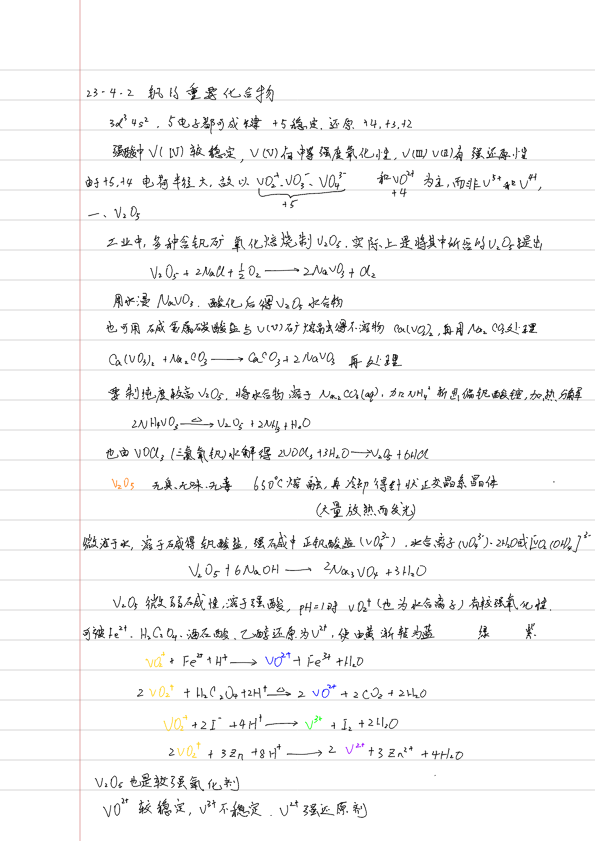 23-4-2 钒的重要化合物
3d³4s². 5电子都可成键 +5稳定. 还原 +4,+3,+2
强酸中V(IV)较稳定, V(V)有中等强度氧化性, V(III) V(II)有强还原性
由于+5,+4 电荷半径大, 故以 VO₂⁺、VO₃⁻、VO₄³⁻ 和VO²⁺ 为主,而非V⁵⁺和V⁴⁺,
+5 +4
一、V₂O₅
工业中,多种含钒矿氧化焙烧制V₂O₅. 实际上是将其中所含的V₂O₅提出
V₂O₅ + 2NaCl + ½O₂ ⟶ 2NaVO₃ + Cl₂
用水浸 NaVO₃. 酸化后得V₂O₅水合物
也可用碱金属碳酸盐与V(V)矿熔融得不溶物 Ca(VO₃)₂, 再用Na₂CO₃处理
Ca(VO₃)₂ + Na₂CO₃ ⟶ CaCO₃ + 2NaVO₃ 再处理
要制纯度较高V₂O₅. 将水合物溶于 Na₂CO₃(aq), 加NH₄⁺析出偏钒酸铵,加热分解
2NH₄VO₃ ⟶△ V₂O₅ + 2NH₃ + H₂O
也由VOCl₃ (三氯氧钒)水解得 2VOCl₃ + 3H₂O ⟶ V₂O₅ + 6HCl
V₂O₅ 无臭.无味.无毒 650℃熔融,再冷却得针状正交晶系晶体
(大量放热而发光)
微溶于水, 溶于碱得钒酸盐, 强碱中正钒酸盐(VO₄³⁻). 水合离子(VO₄³⁻)·2H₂O或[VO₂(OH)₄]³⁻
V₂O₅ + 6NaOH ⟶ 2Na₃VO₄ + 3H₂O
V₂O₅ 微弱碱性,溶于强酸, pH=1时 VO₂⁺(也为水合离子)有较强氧化性.
可被Fe²⁺. H₂C₂O₄. 酒石酸、乙醇还原为V²⁺, 使由黄渐转为蓝 绿 紫.
VO₂⁺ + Fe²⁺ + H⁺ ⟶ VO²⁺ + Fe³⁺ + H₂O
2 VO₂⁺ + H₂C₂O₄ + 2H⁺ ⟶△ 2 VO²⁺ + 2CO₂ + 2H₂O
VO₂⁺ + 2I⁻ + 4H⁺ ⟶ V³⁺ + I₂ + 2H₂O
2VO₂⁺ + 3Zn + 8H⁺ ⟶ 2 V²⁺ + 3Zn²⁺ + 4H₂O
V₂O₅也是较强氧化剂
VO²⁺ 较稳定, V³⁺不稳定. V²⁺强还原剂